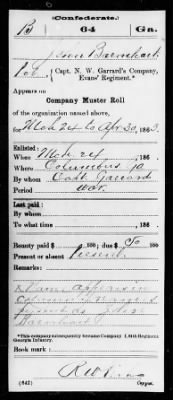 (Confederate.)
B 64 Ga.
John Barnhart
Capt. N. W. Garrard's Company,
Evans' Regiment.*
Appears on
Company Muster Roll
of the organization named above,
for Mch 24 to Apr 30, 1863.
Enlisted:
When Mch 24, 186
Where Columbus
By whom Capt. Garrard
Period war.
Last paid:
By whom
To what time , 186
Bounty paid $ 100; due $ 50 100
Present or absent Present
Remarks:
Name appears in
column of names
present as John
Barnhart
*This company subsequently became Company , 64th Regiment
Georgia Infantry.
Book mark:
(642) Copyist.